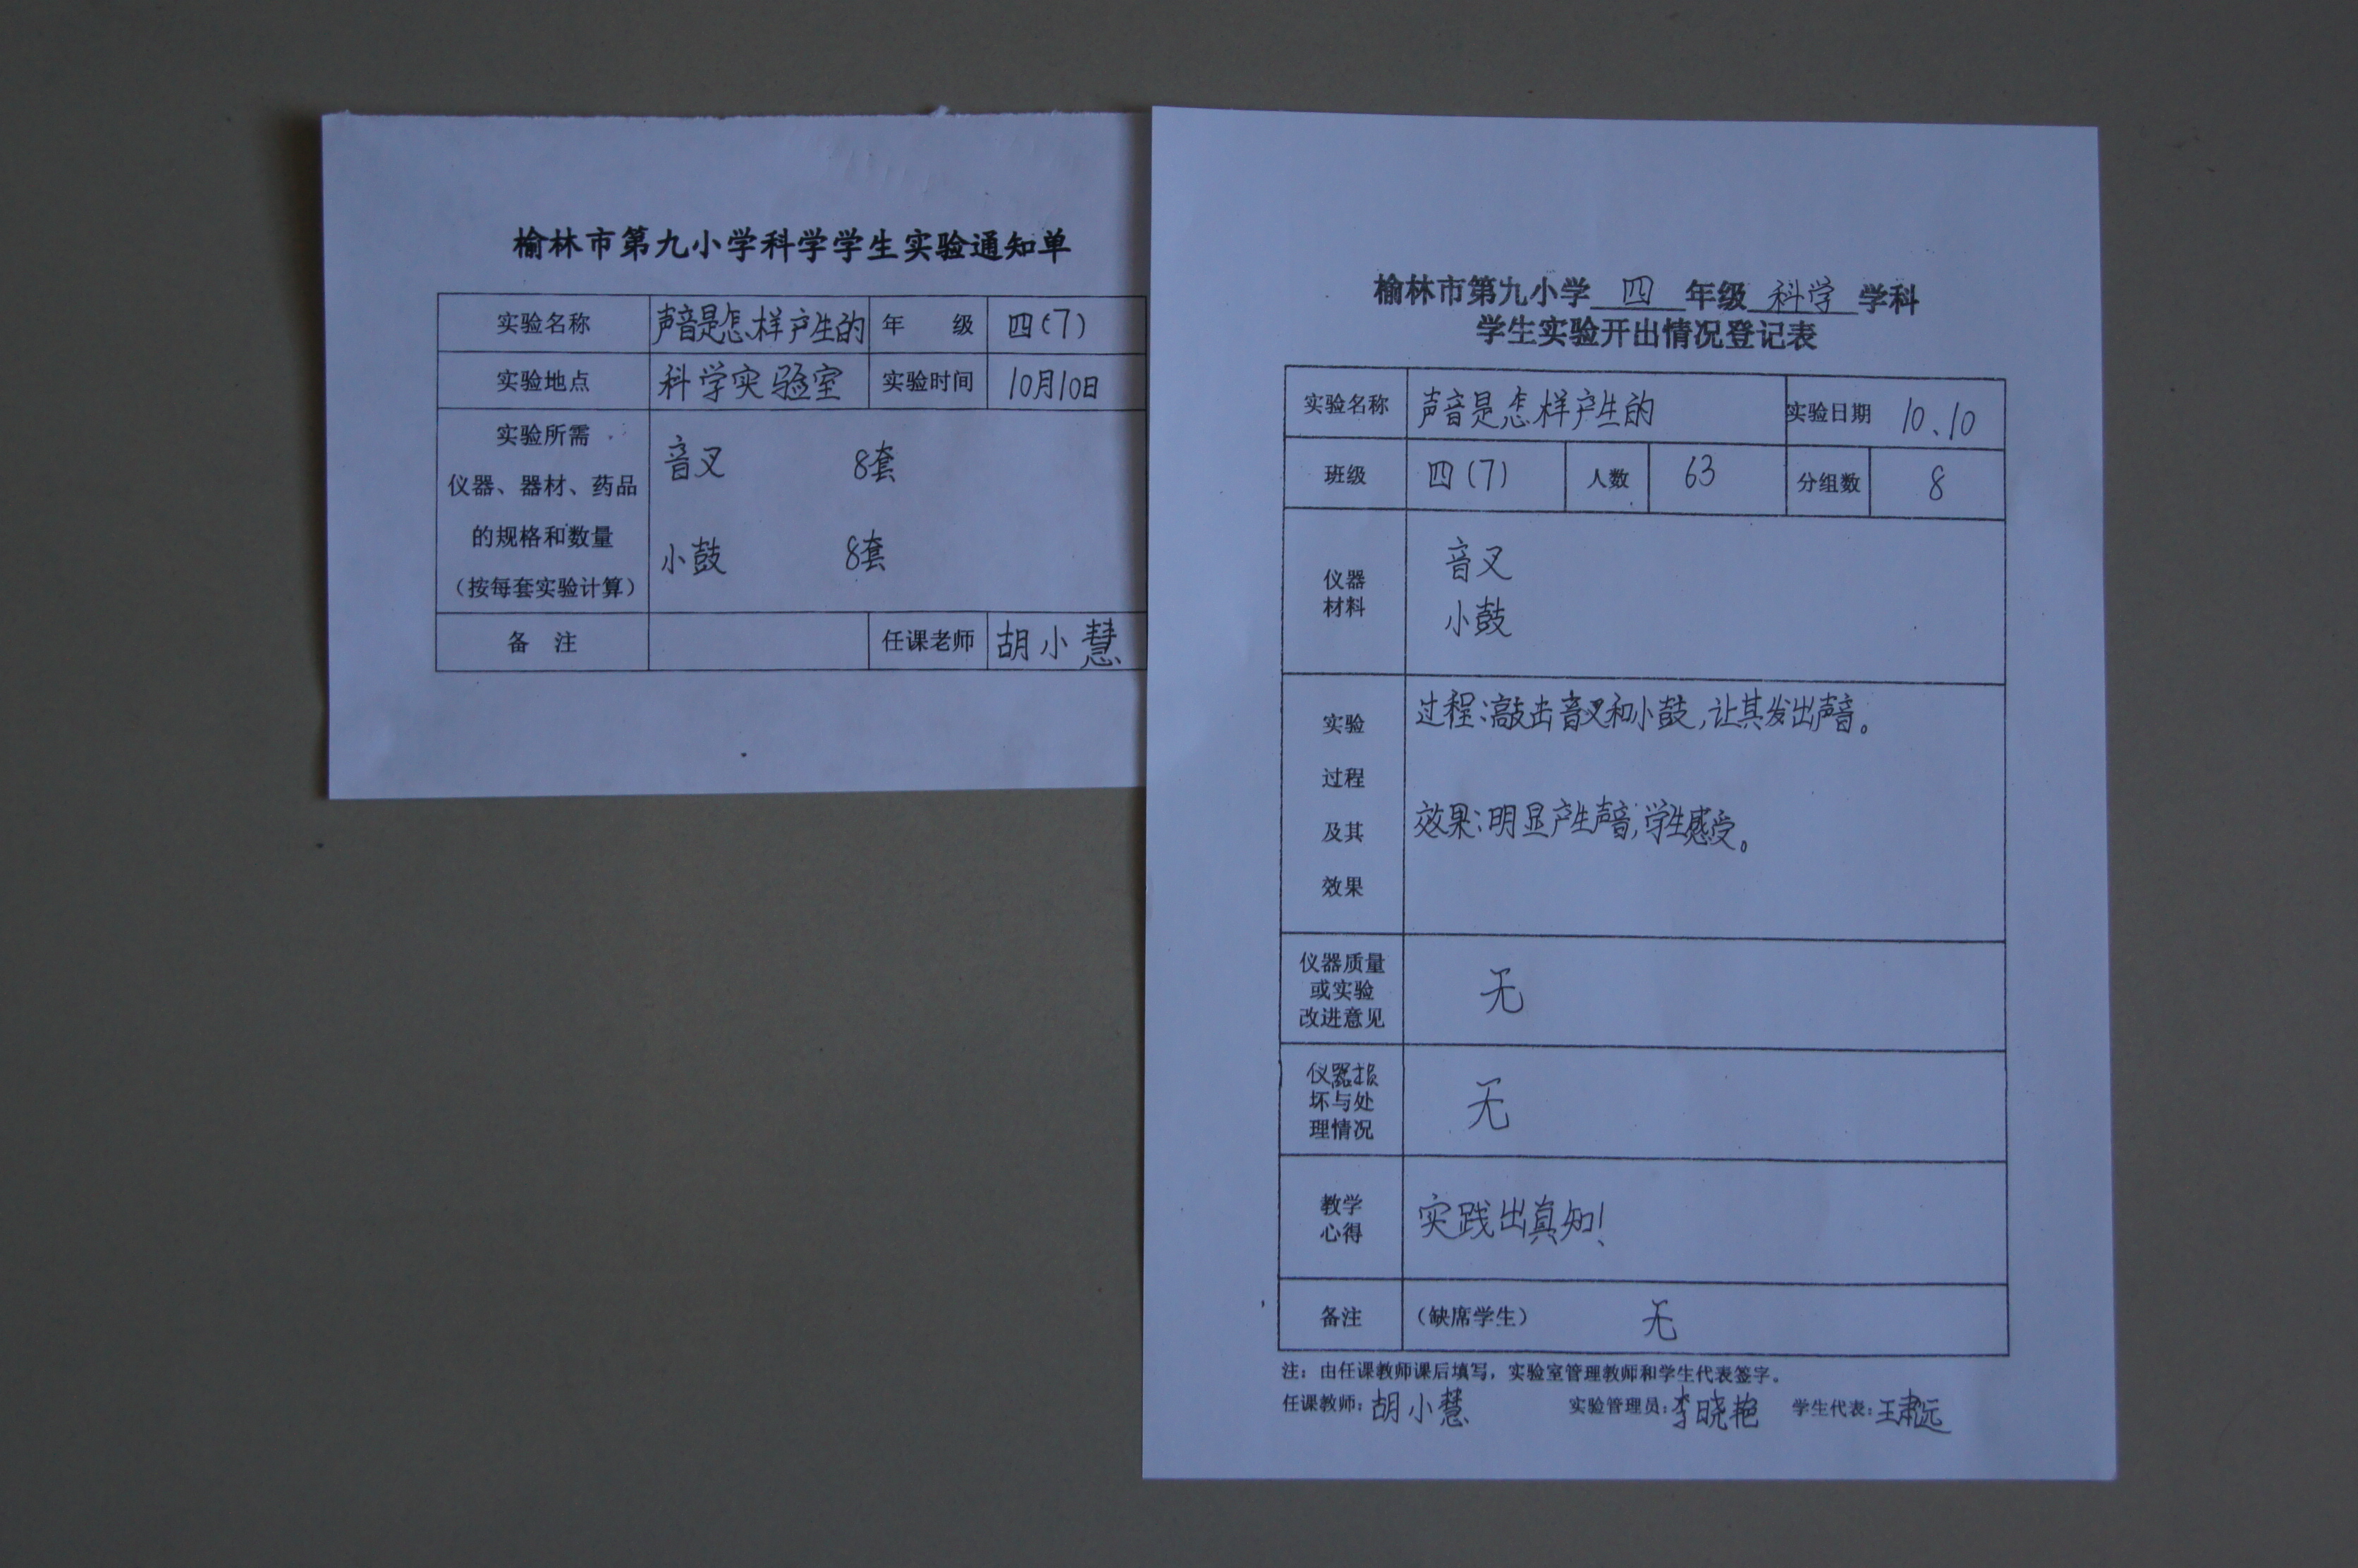 榆林市第九小学科学学生实验通知单
实验名称 声音是怎样产生的 年 级 四(7)
实验地点 科学实验室 实验时间 10月10日
实验所需
仪器、器材、药品
的规格和数量
(按每套实验计算)
音叉 8套
小鼓 8套
备 注 任课老师 胡小慧
榆林市第九小学 四 年级 科学 学科
学生实验开出情况登记表
实验名称 声音是怎样产生的 实验日期 10、10
班级 四(7) 人数 63 分组数 8
仪器
材料
音叉
小鼓
实验
过程
及其
效果
过程:敲击音叉和小鼓,让其发出声音。
效果:明显产生声音;学生感受。
仪器质量
或实验
改进意见
无
仪器损
坏与处
理情况
无
教学
心得
实践出真知!
备注 (缺席学生) 无
注:由任课教师课后填写,实验室管理教师和学生代表签字。
任课教师:胡小慧 实验管理员:李晓艳 学生代表:王肃远